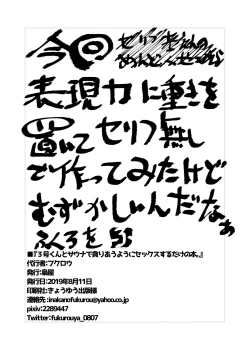 今回
表現力に重きを
置いてセリフ無し
で作ってみたけど
むずかしいんだなぁ
■『3号くんとサウナで貪りあうようにセックスするだけの本。』
代行者:フクロウ
発行:梟屋
発行日:2019年8月11日
印刷社:きょうゆう出版様
連絡先:inakanofukurou@yahoo.co.jp
pixiv:2289447
Twitter:fukurouya_0807